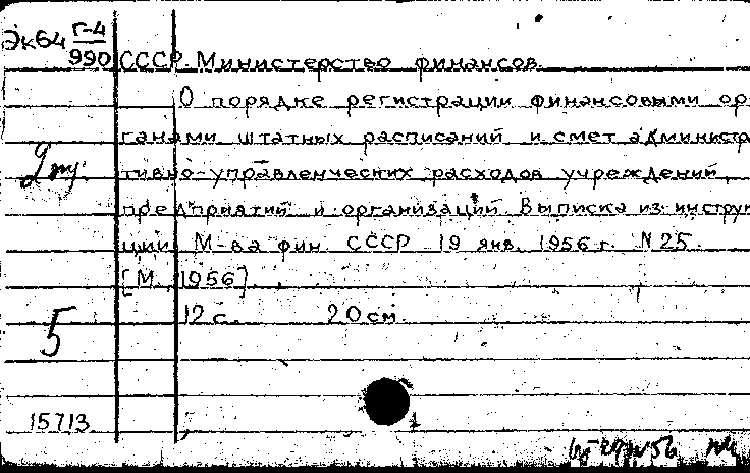 Эк64 Г-4
990 СССР. Министерство финансов.
О порядке регистрации финансовыми ор
ганами штатных расписаний и смет администра
тивно-управленческих расходов учреждений,
предприятий и организаций. Выписка из инструк
ции М-ва фин. СССР 19 янв. 1956 г. N 25.
[М. 1956]
12 с. 20 см.
5
15713